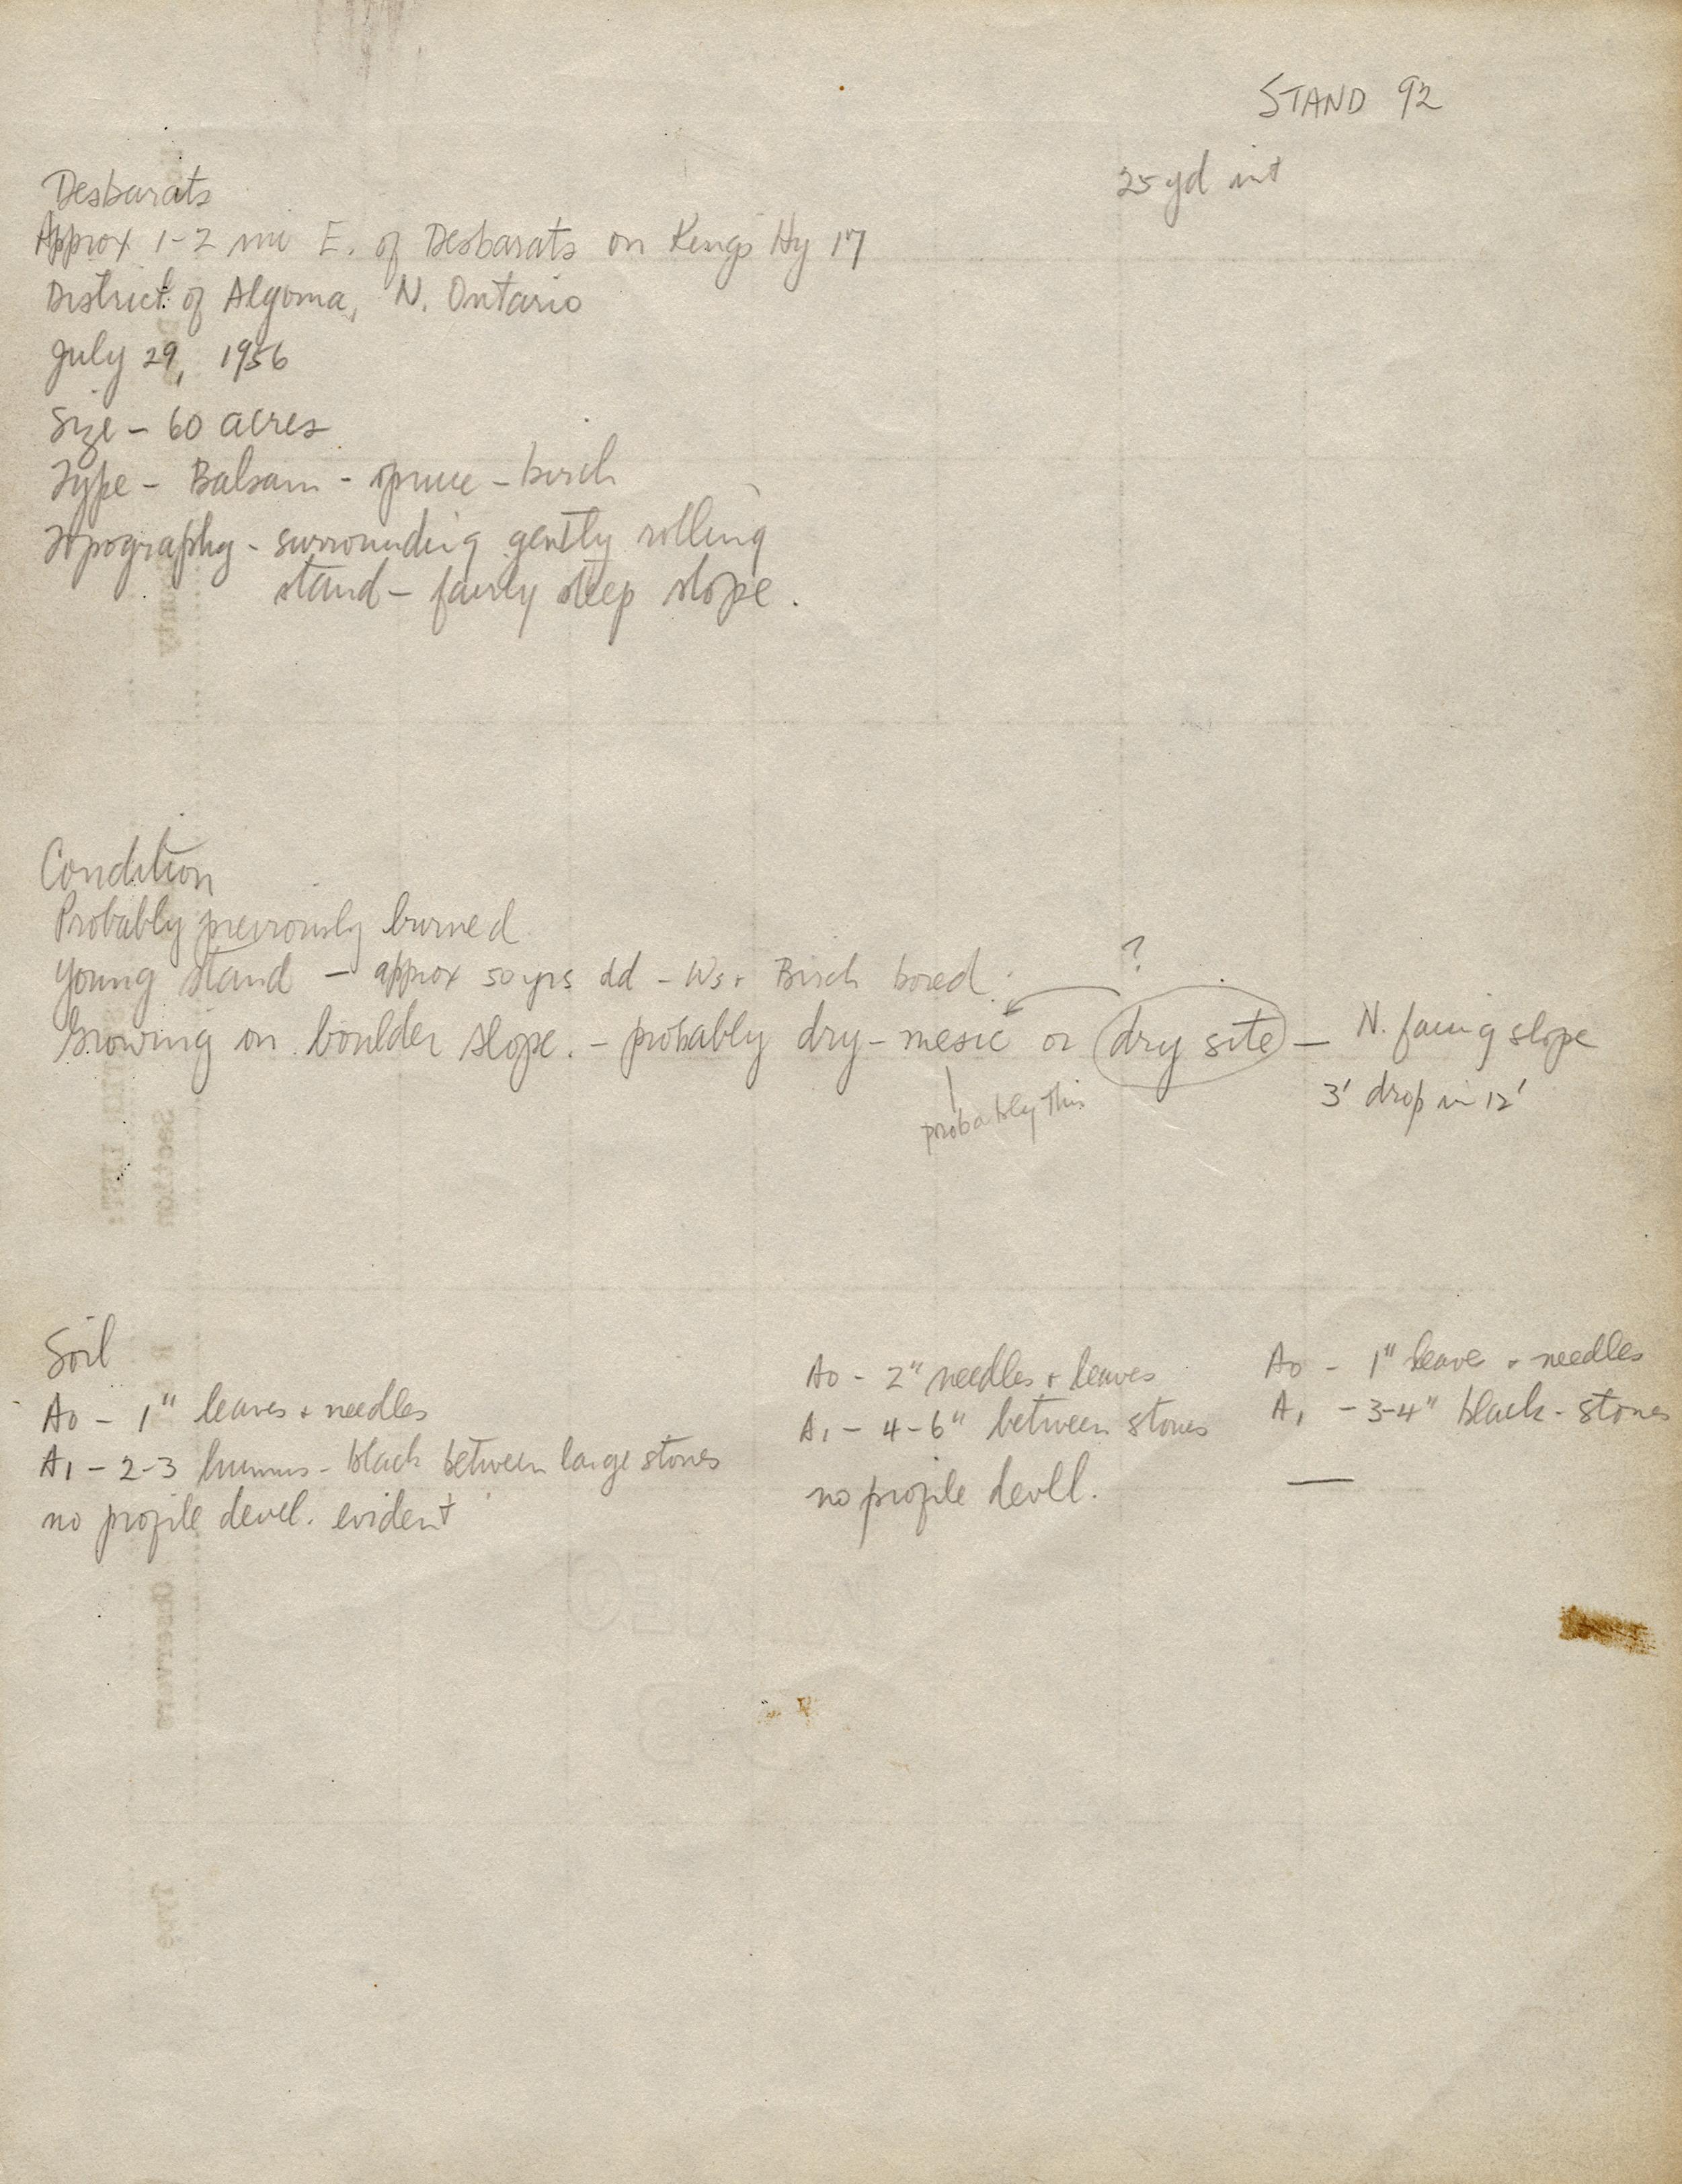 STAND 92
25 yd int
Desbarats
Approx 1-2 mi E. of Desbarats on Kings Hy 17
District of Algoma, N. Ontario
July 29, 1956
Size - 60 acres
Type - Balsam - spruce - birch
Topography - surrounding gently rolling
stand - fairly steep slope.
Condition
Probably previously burned
Young stand - approx 50 yrs old - Ws + Birch bored.
?
Growing on boulder slope. - probably dry-mesic or dry site - N. facing slope
probably this
3' drop in 12'
Soil
A0 - 1" leaves + needles
A1 - 2-3 humus - black between large stones
no profile devel. evident
A0 - 2" needles + leaves
A1 - 4-6" between stones
no profile devll.
A0 - 1" leave + needles
A1 - 3-4" black - stones
—
Section
Observers
Type